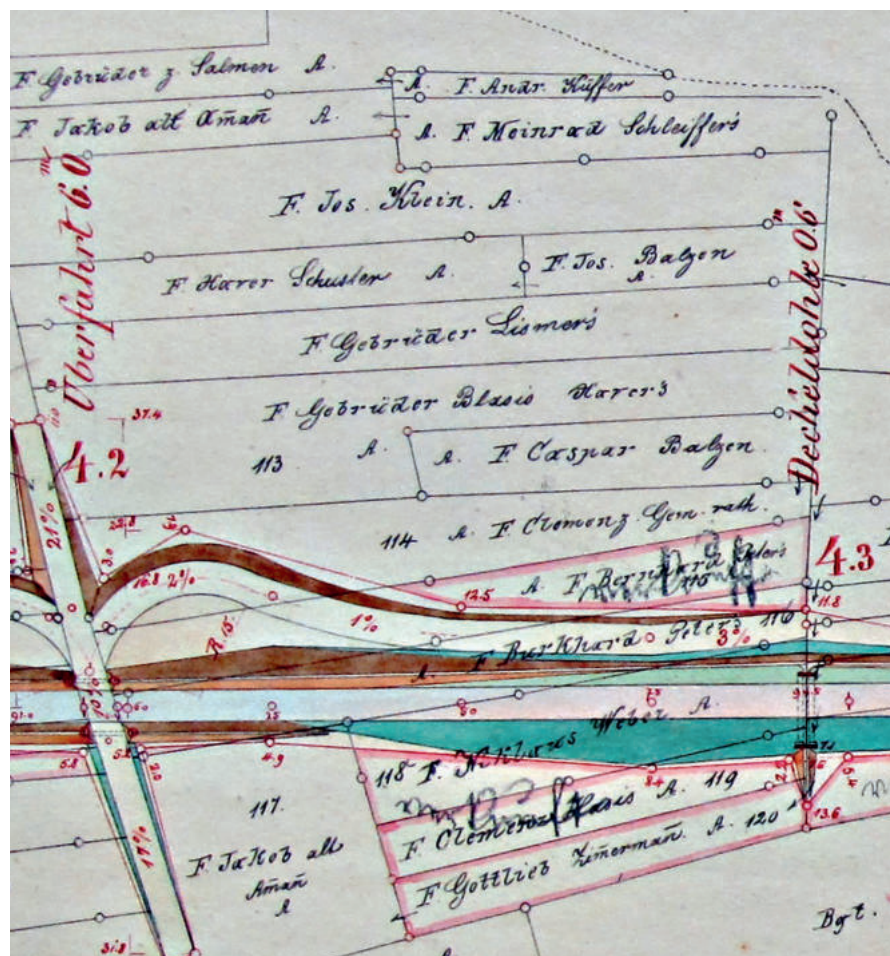 F. Gebrüder z. Salmen A.
A. F. Andr. Küffer
F. Jakob alt Amañ A.
A. F. Meinrad Schleiffers
Überfahrt 6.0
F. Jos. Klein. A.
F. Xaver Schuster A.
F. Jos. Balzen
A.
Decheldohle 0.6
F. Gebrüder Lismers
F. Gebrüder Blasis Xavers
37.4
4.2
113
A.
A. F. Caspar Balzen
21%
22.8
114 A. F. Clemenz Gem. rath.
4.3
3.0
16.8 2%
A. F. Bernhard Peters
115
12.5
11.8
R. 15
1%
A. F. Burkhard Peters 116
3%
F. Niklaus Weber A.
5.8
4.9
2.0
118
8.4
117.
F. Clemenz Blasis A. 119
13.6
F. Jakob alt
Amañ
A
F. Gottlieb Zimermañ. A. 120
17%
31.8
Bgt.